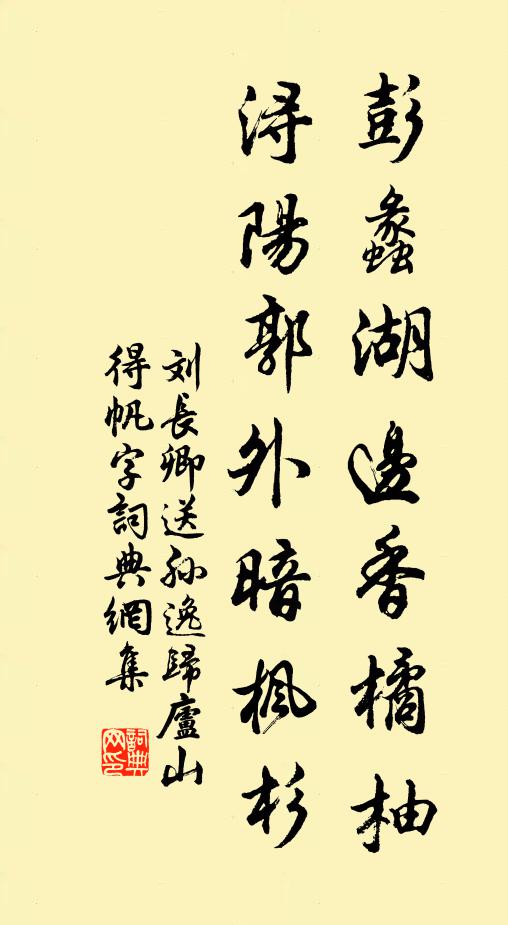 彭蠡湖邊香橘柚
浔陽郭外暗楓杉
刘長卿送孙逸歸廬山
得帆字詞典網集
詞典
网印